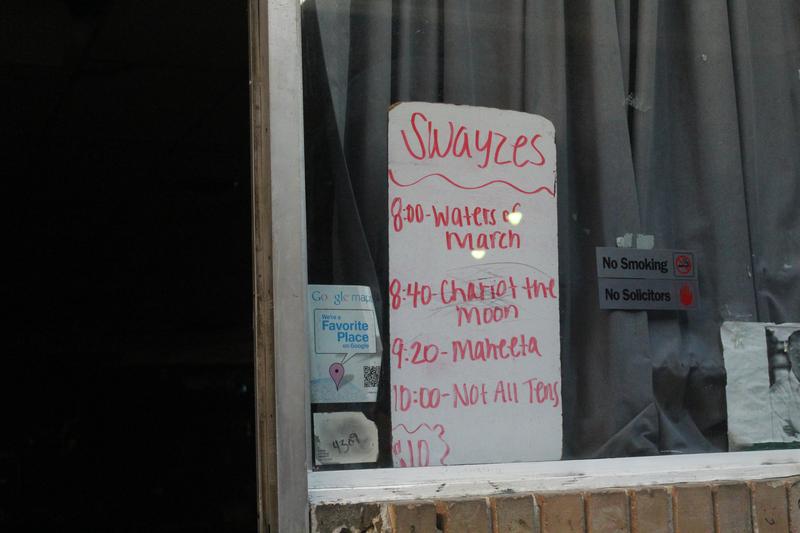 Swayzes
8:00-Waters of
March
8:40-Chariot the
Moon
9:20-Maneeta
10:00-Not All Tens
$10
Google maps
We're a
Favorite
Place
on Google
4309
No Smoking
No Solicitors